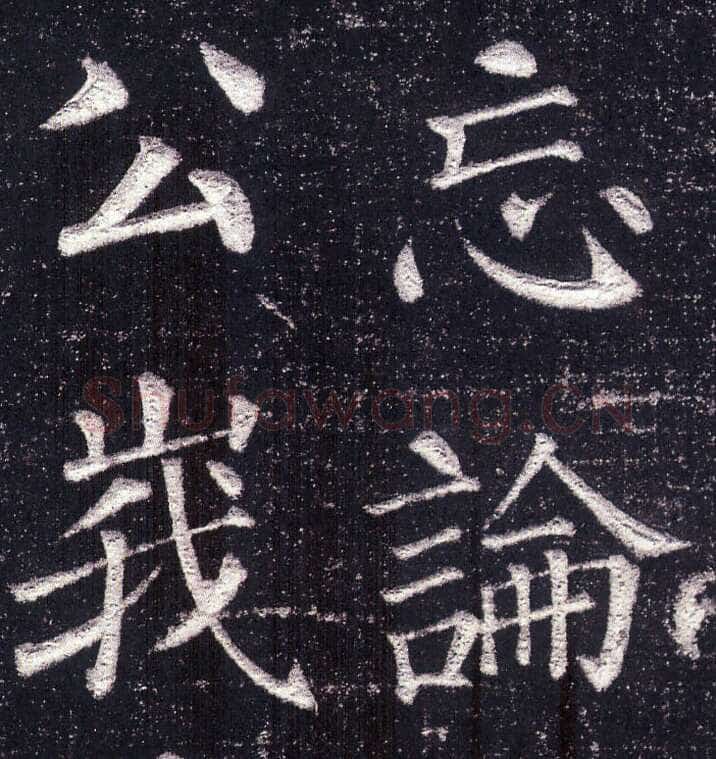 忘論
公峩
Shufawang.CN